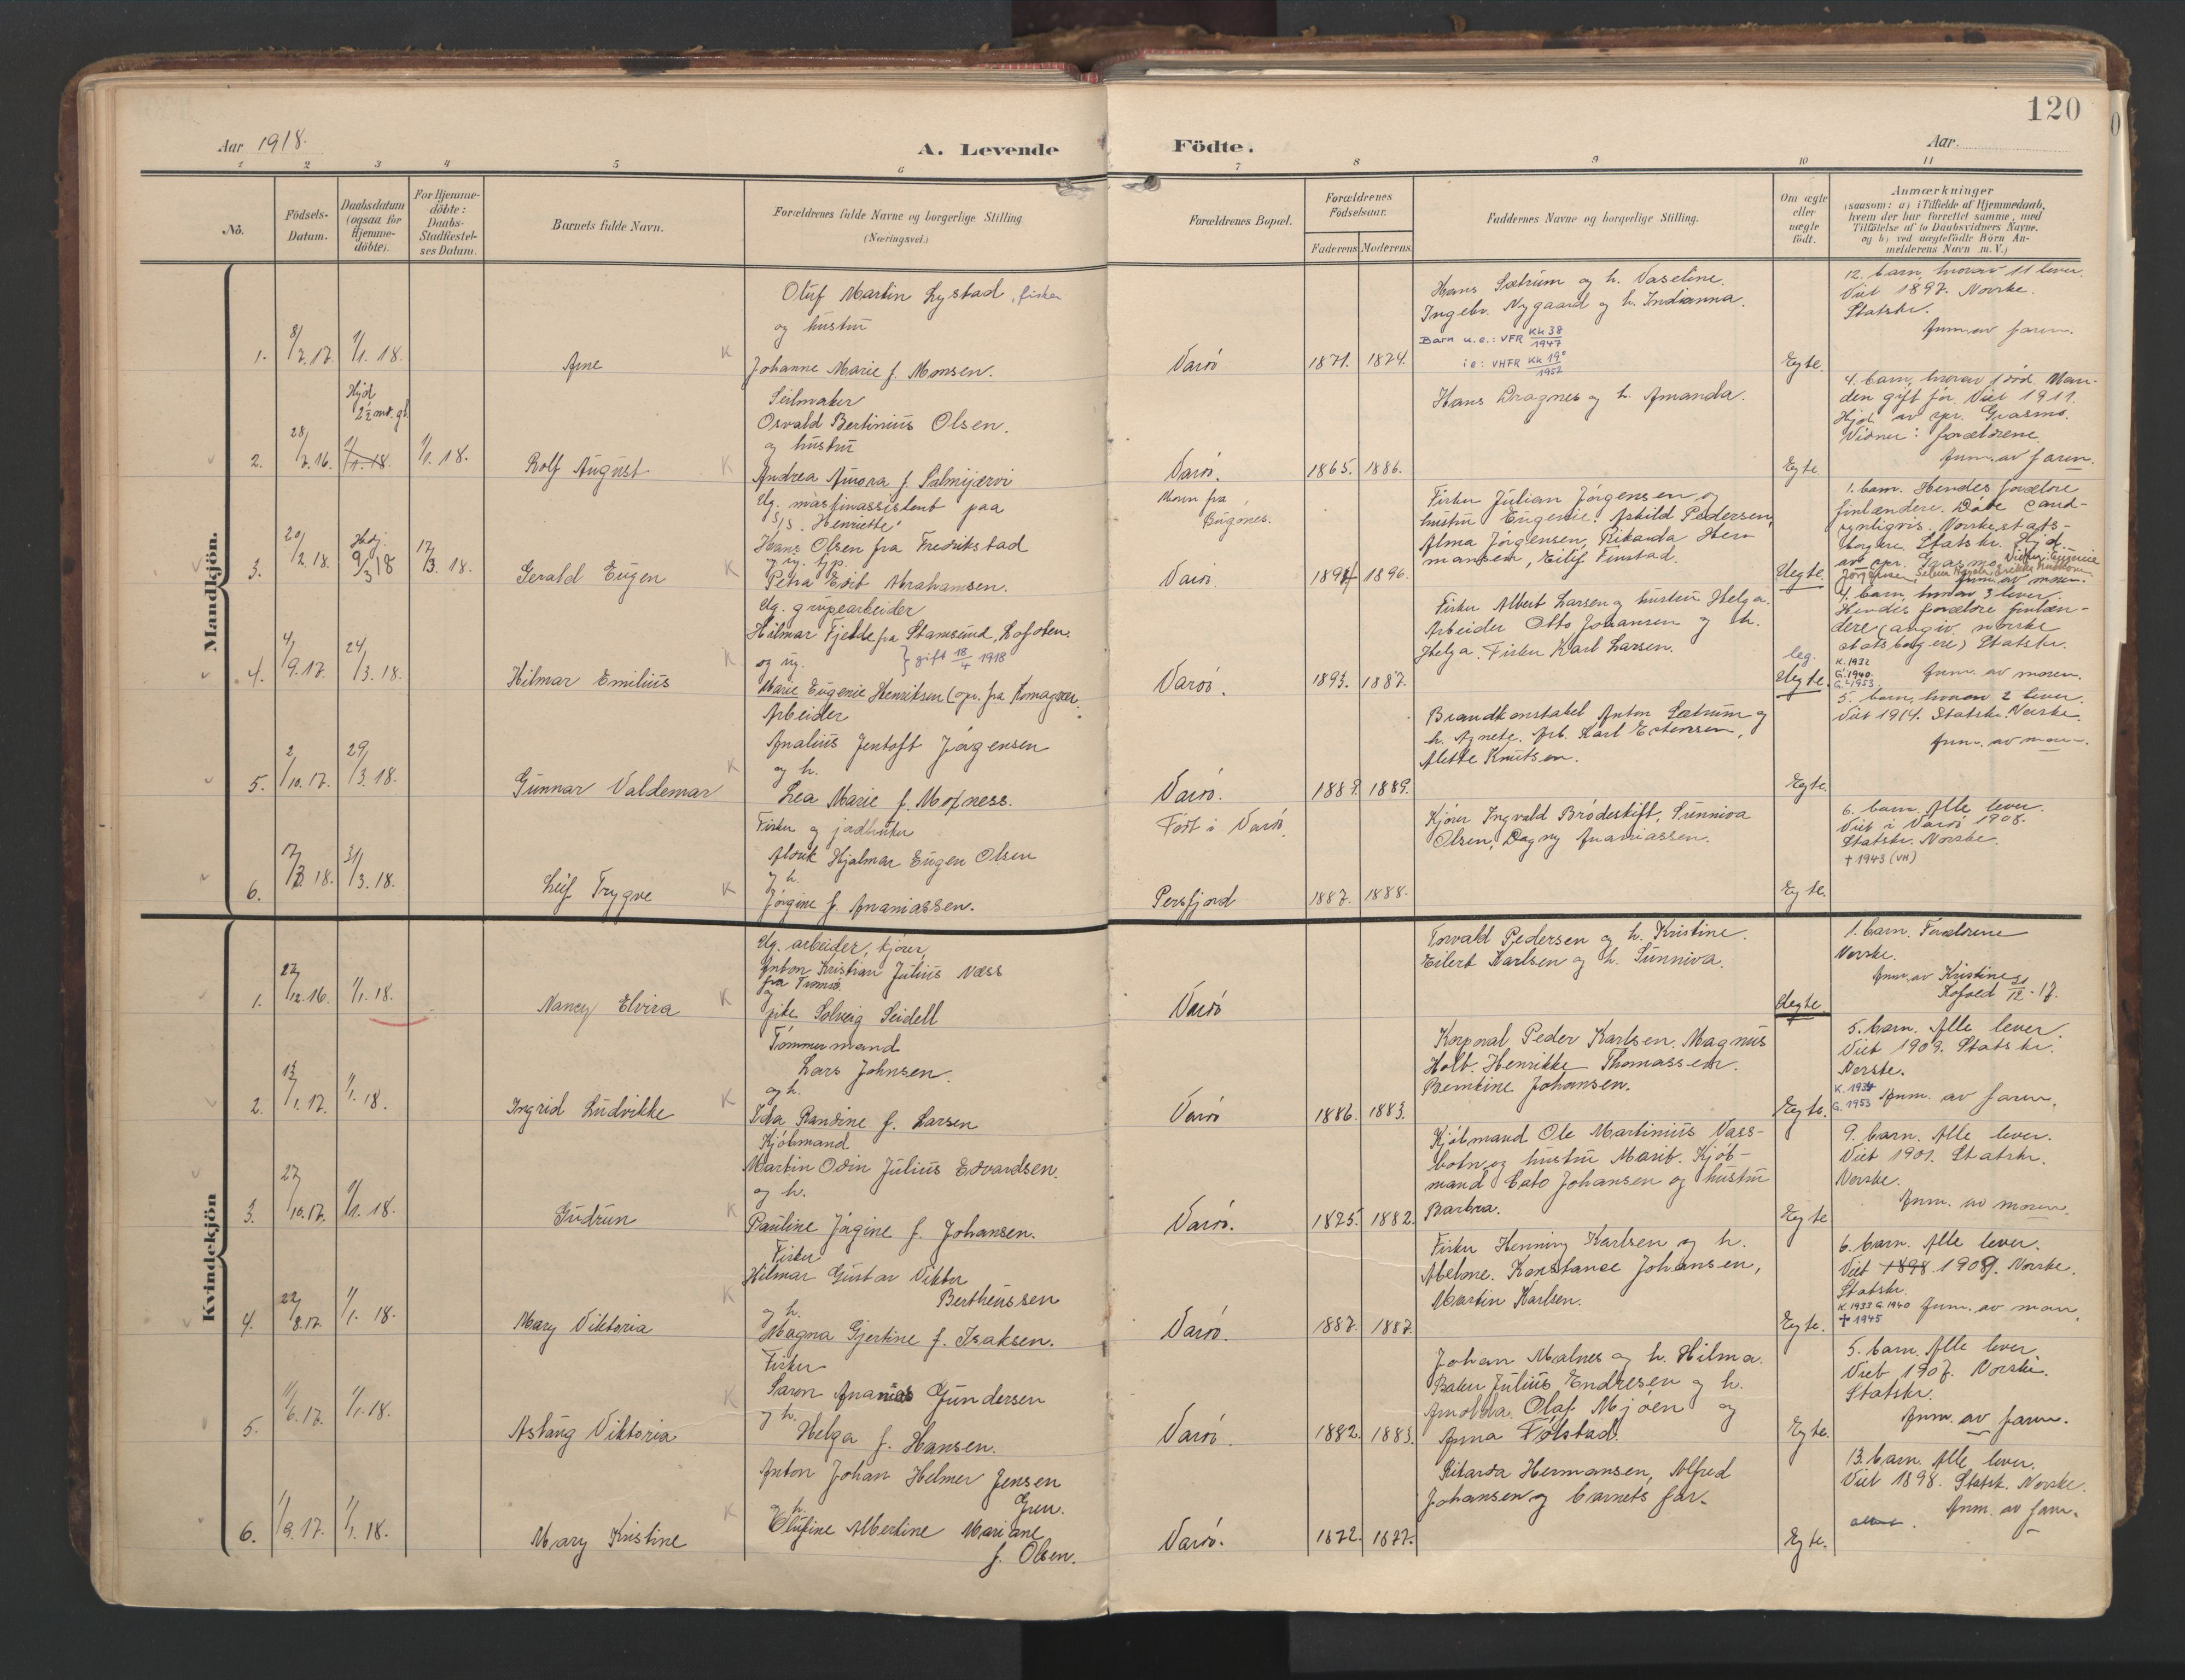 120
Aar 1918.
A. Levende Födte.
Aar
1 2 3 4 5 6 7 8 9 10 11
No.
Födsels-Datum.
Daabsdatum (ogsaa for Hjemme-döbte).
For Hjemme-döbte: Daabs-Stadfæstel-ses Datum.
Barnets fulde Navn.
Forældrenes fulde Navne og borgerlige Stilling (Næringsvei.)
Forældrenes Bopæl.
Forældrenes Födselsaar.
Faderens Moderens
Faddernes Navne og borgerlige Stilling.
Om ægte eller uægte födt.
Anmærkninger
(saasom: a) i Tilfælde af Hjemmedaab, hvem der har forrettet samme, med Tilföielse af to Daabsvidners Navne. og b) ved uægtefödte Börn An-melderens Navn m. V.)
Mandkjön.
1. 8/7.17. 1/1.18.
Arne
K
Oluf Martin Lystad, fisker
og hustru
Johanne Marie f. Monsen.
Vardö
1871. 1874.
Hans Sætrum og h. Vaseline.
Ingebr. Nygaard og h. Indianna.
Barn u.e.: VFR Kk 38/1947
i e: VHFR Kk 19/1952
Egte.
12. barn, hvorav 11 lever.
Viet 1897. Norske.
Statskr.
Anm. av faren.
2. 28/7.16. Hjd 2½ md. gl. 1/1.18. 1/1.18.
Rolf August
K
Seilmaker
Osvald Bertinius Olsen.
og hustru
Andrea Aurora f. Salmijærvi
Vardö.
1865. 1886.
Hans Dragnes og h. Amanda.
Egte
4. barn, hvorav 1 död. Man-
den gift för. Viet 1911.
Hjd. av spr. Grasmo.
Vidner: forældrene.
Anm. av faren.
3. 20/2.18. Hjd. 9/3 18 17/3.18.
Gerald Eugen
K
Ug. maskinassistent paa
S/S. "Henriette"
Hans Olsen fra Fredrikstad
og ug. tj.p.
Petra Edit Abrahamsen.
Moren fra
Bugönes.
Vardö.
1894 1896.
Fisker Julian Jörgensen og
hustru Eugenie. Askild Pedersen,
Alma Jörgensen, Rikarda Her-
mansen, Eilif Finstad.
Uegte.
1. barn. Hendes forældre
finlændere. Döbe sand-
synligvis. Norske stats-
borgere. Statskr. Hjd.
av spr. Grasmo. Vidner: Eugenie
Anm. av moren.
4. 4/9.17. 24/3.18.
Hilmar Emilius
K
Ug. grubearbeider
Hilmar Fjelde fra Stamsund, Lofoten.
og ug. } gift 18/4 1918
Marie Eugenie Henriksen (opr. fra Komagvær.
Vardö.
1893. 1887.
Fisker Albert Larsen og hustru Helga.
Arbeider Otto Johansen og h.
Helga. Fisker Karl Larsen.
leg.
Uegte.
4. barn, hvorav 3 lever.
Hendes forældre finlæn-
dere (angiv. norske
statsborgere) Statskr.
K. 1932
G. 1940
G. 1953
Anm. av moren.
5. 2/10.17. 29/3.18.
Gunnar Valdemar
K
Arbeider
Analius Jentoft Jörgensen
og h.
Lea Marie f. Mofness.
Vardö.
1889. 1889.
Brandkonstabel Anton Sætrum og
h. Agnete. Arb. Karl Estensen,
Alette Knutsen.
Egte.
5. barn, hvorav 2 lever.
Viet 1914. Statskr. Norske.
Anm. av moren.
6. 31/3.18.
Leif Trygve
K
Fisker og jordbruker
Hjalmar Eugen Olsen
og h.
Jörgine f. Ananiassen.
Födt i Vardö.
Persfjord
1887. 1888.
Kjörer Ingvald Brödeskift, Sunniva
Olsen, Dagny Ananiassen.
Egte.
6. barn. Alle lever.
Viet i Vardö 1908.
Statskr. Norske.
† 1943 (VH)
Kvindekjön
1. 27/12.16. 1/1.18.
Nancy Elvira
K
Ug. arbeider, kjörer,
Anton Kristian Julius Næss
fra Tromsö
og
pike Solveig Seidell
Vardö
Torvald Pedersen og h. Kristine.
Eilert Karlsen og h. Sunniva.
Uegte
1. barn. Forældrene
Norske.
Anm. av Kristine
Kofoed 31/12-17.
2. 13/1.17. 1/1.18.
Ingrid Ludvikke
K
Tömmermand
Lars Johnsen.
og h.
Ida Randine f. Larsen
Vardö
1886. 1883.
Korporal Peder Karlsen. Magnus
Holt. Henrikke Thomassen.
Berntine Johansen.
Egte.
5. barn. Alle lever.
Viet 1909. Statskr.
Norske.
K. 1934
G. 1953 Anm. av faren.
3. 27/10.17. 1/1.18.
Gudrun
K
Kjöbmand
Martin Odin Julius Edvardsen.
og h.
Pauline Jörgine f. Johansen.
Vardö.
1875. 1882.
Kjöbmand Ole Martinius Vass-
botn og hustru Marit. Kjöb-
mand Cato Johansen og hustru
Barbra.
Egte
9. barn. Alle lever.
Viet 1901. Statskr.
Norske.
Anm. av moren.
4. 22/8.17. 1/1.18.
Mary Viktoria
K
Fisker
Hilmar Gustav Viktor
Bertheussen
og h.
Magna Gjertine f. Isaksen.
Vardö.
1887. 1887.
Fisker Henning Karlsen og h.
Abelone. Konstance Johansen,
Martin Karlsen.
Egte.
6. barn. Alle lever.
Viet 1898. 1909. Norske.
Statskr.
K. 1933 G. 1940 Anm. av moren.
† 1945
5. 11/6.17. 1/1.18.
Aslaug Viktoria
K
Fisker
Saron Ananias Gundersen
og h.
Helga f. Hansen.
Vardö.
1882. 1883.
Johan Malnes og h. Hilma.
Baker Julius Endresen og h.
Arnolda. Olaf Mjöen og
Anna Folstad.
Egte.
5. barn. Alle lever.
Viet 1907. Norske.
Statskr.
Anm. av faren.
6. 1/9.17. 1/1.18.
Mary Kristine
K
Anton Johan Helmer Jensen
Gren.
og h.
Olufine Albertine Mariane
f. Olsen.
Vardö.
1872. 1877.
Rikarda Hermansen, Alfred
Johansen og barnets far.
Egte.
13. barn. Alle lever.
Viet 1898. Statsk. Norske.
Anm. av faren.